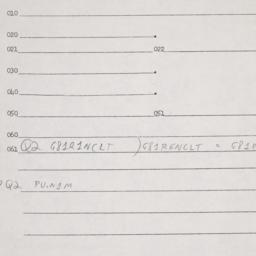 010
020
021 022
030
040
050 051
060
061 Q2 G81R1NCLT )G81RENCLT = G81R
Q2 PU.N1M